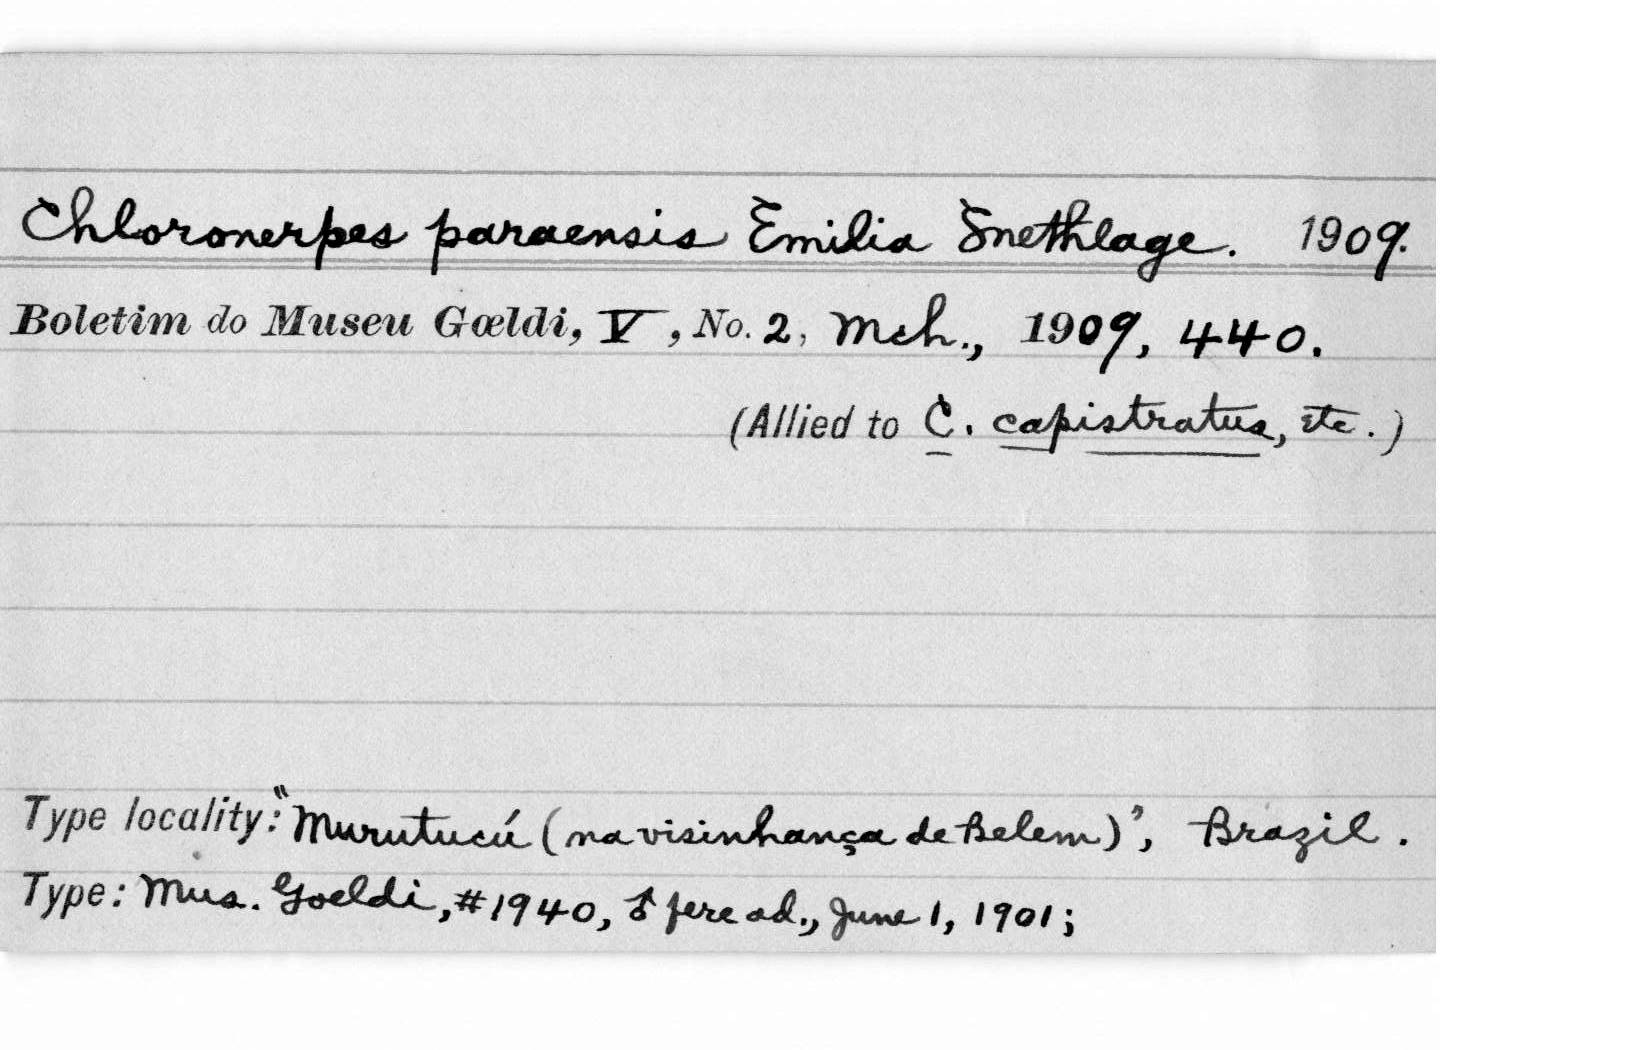 Chloronerpes paraensis Emilia Snethlage. 1909.
Boletim do Museu Gœldi, V, No. 2, Mch., 1909, 440.
(Allied to C. capistratus, etc.)
Type locality: "Murutucú (na visinhança de Belem)", Brazil.
Type: Mus. Goeldi, #1940, ♂ fere ad., June 1, 1901;